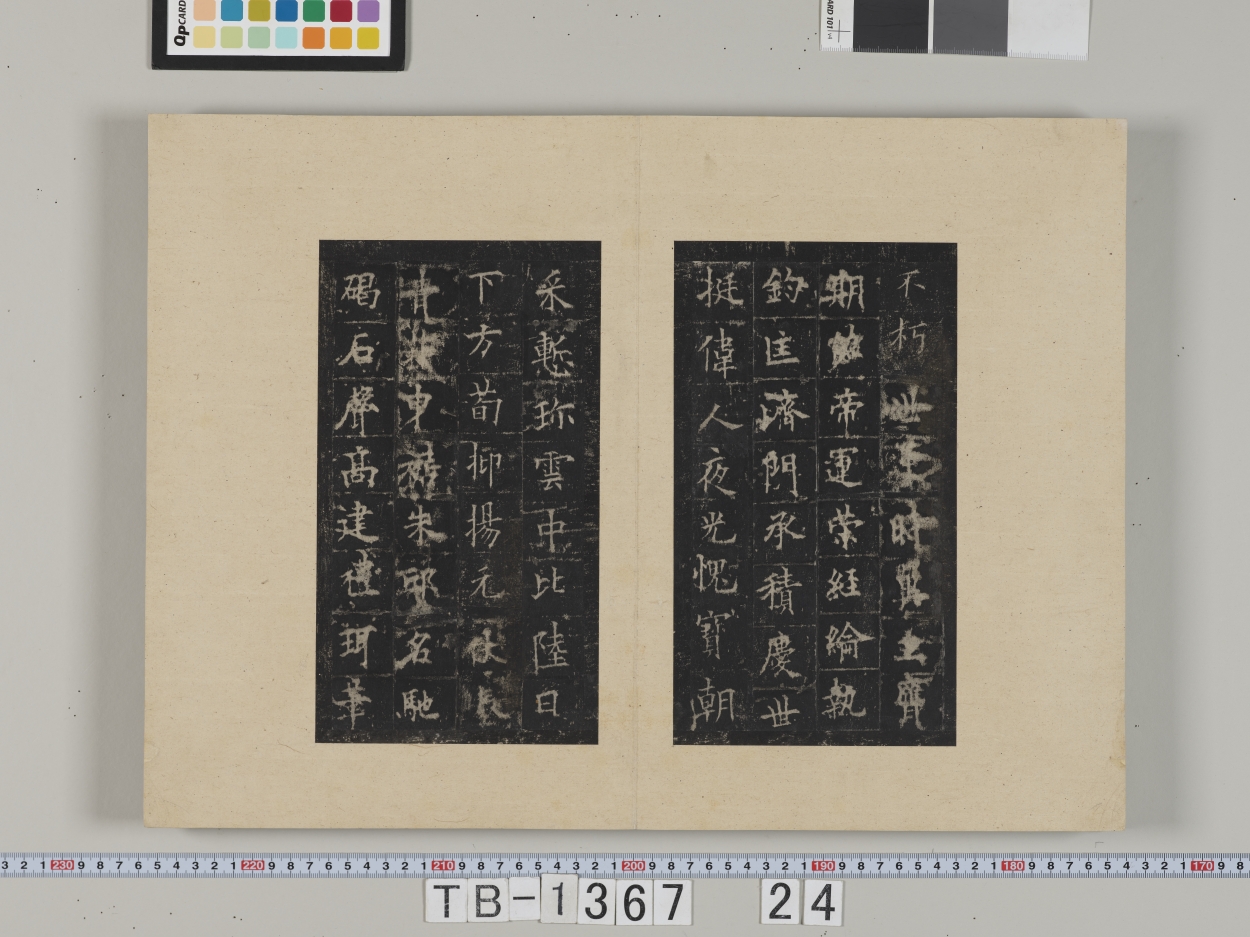 不朽時
期帝運榮經綸執
鈞匡濟門承積慶世
挺偉人夜光愧寶朝
采慙珎雲中比陸日
下方荀抑揚元
東朱邸名馳
碣石聲高建禮珥筆
QpCARD
CARD 101 v4
3 2 1 230 9 8 7 6 5 4 3 2 1 220 9 8 7 6 5 4 3 2 1 210 9 8 7 6 5 4 3 2 1 200 9 8 7 6 5 4 3 2 1 190 9 8 7 6 5 4 3 2 1 180 9 8 7 6 5 4 3 2 1 170 9 8
TB-1367 24